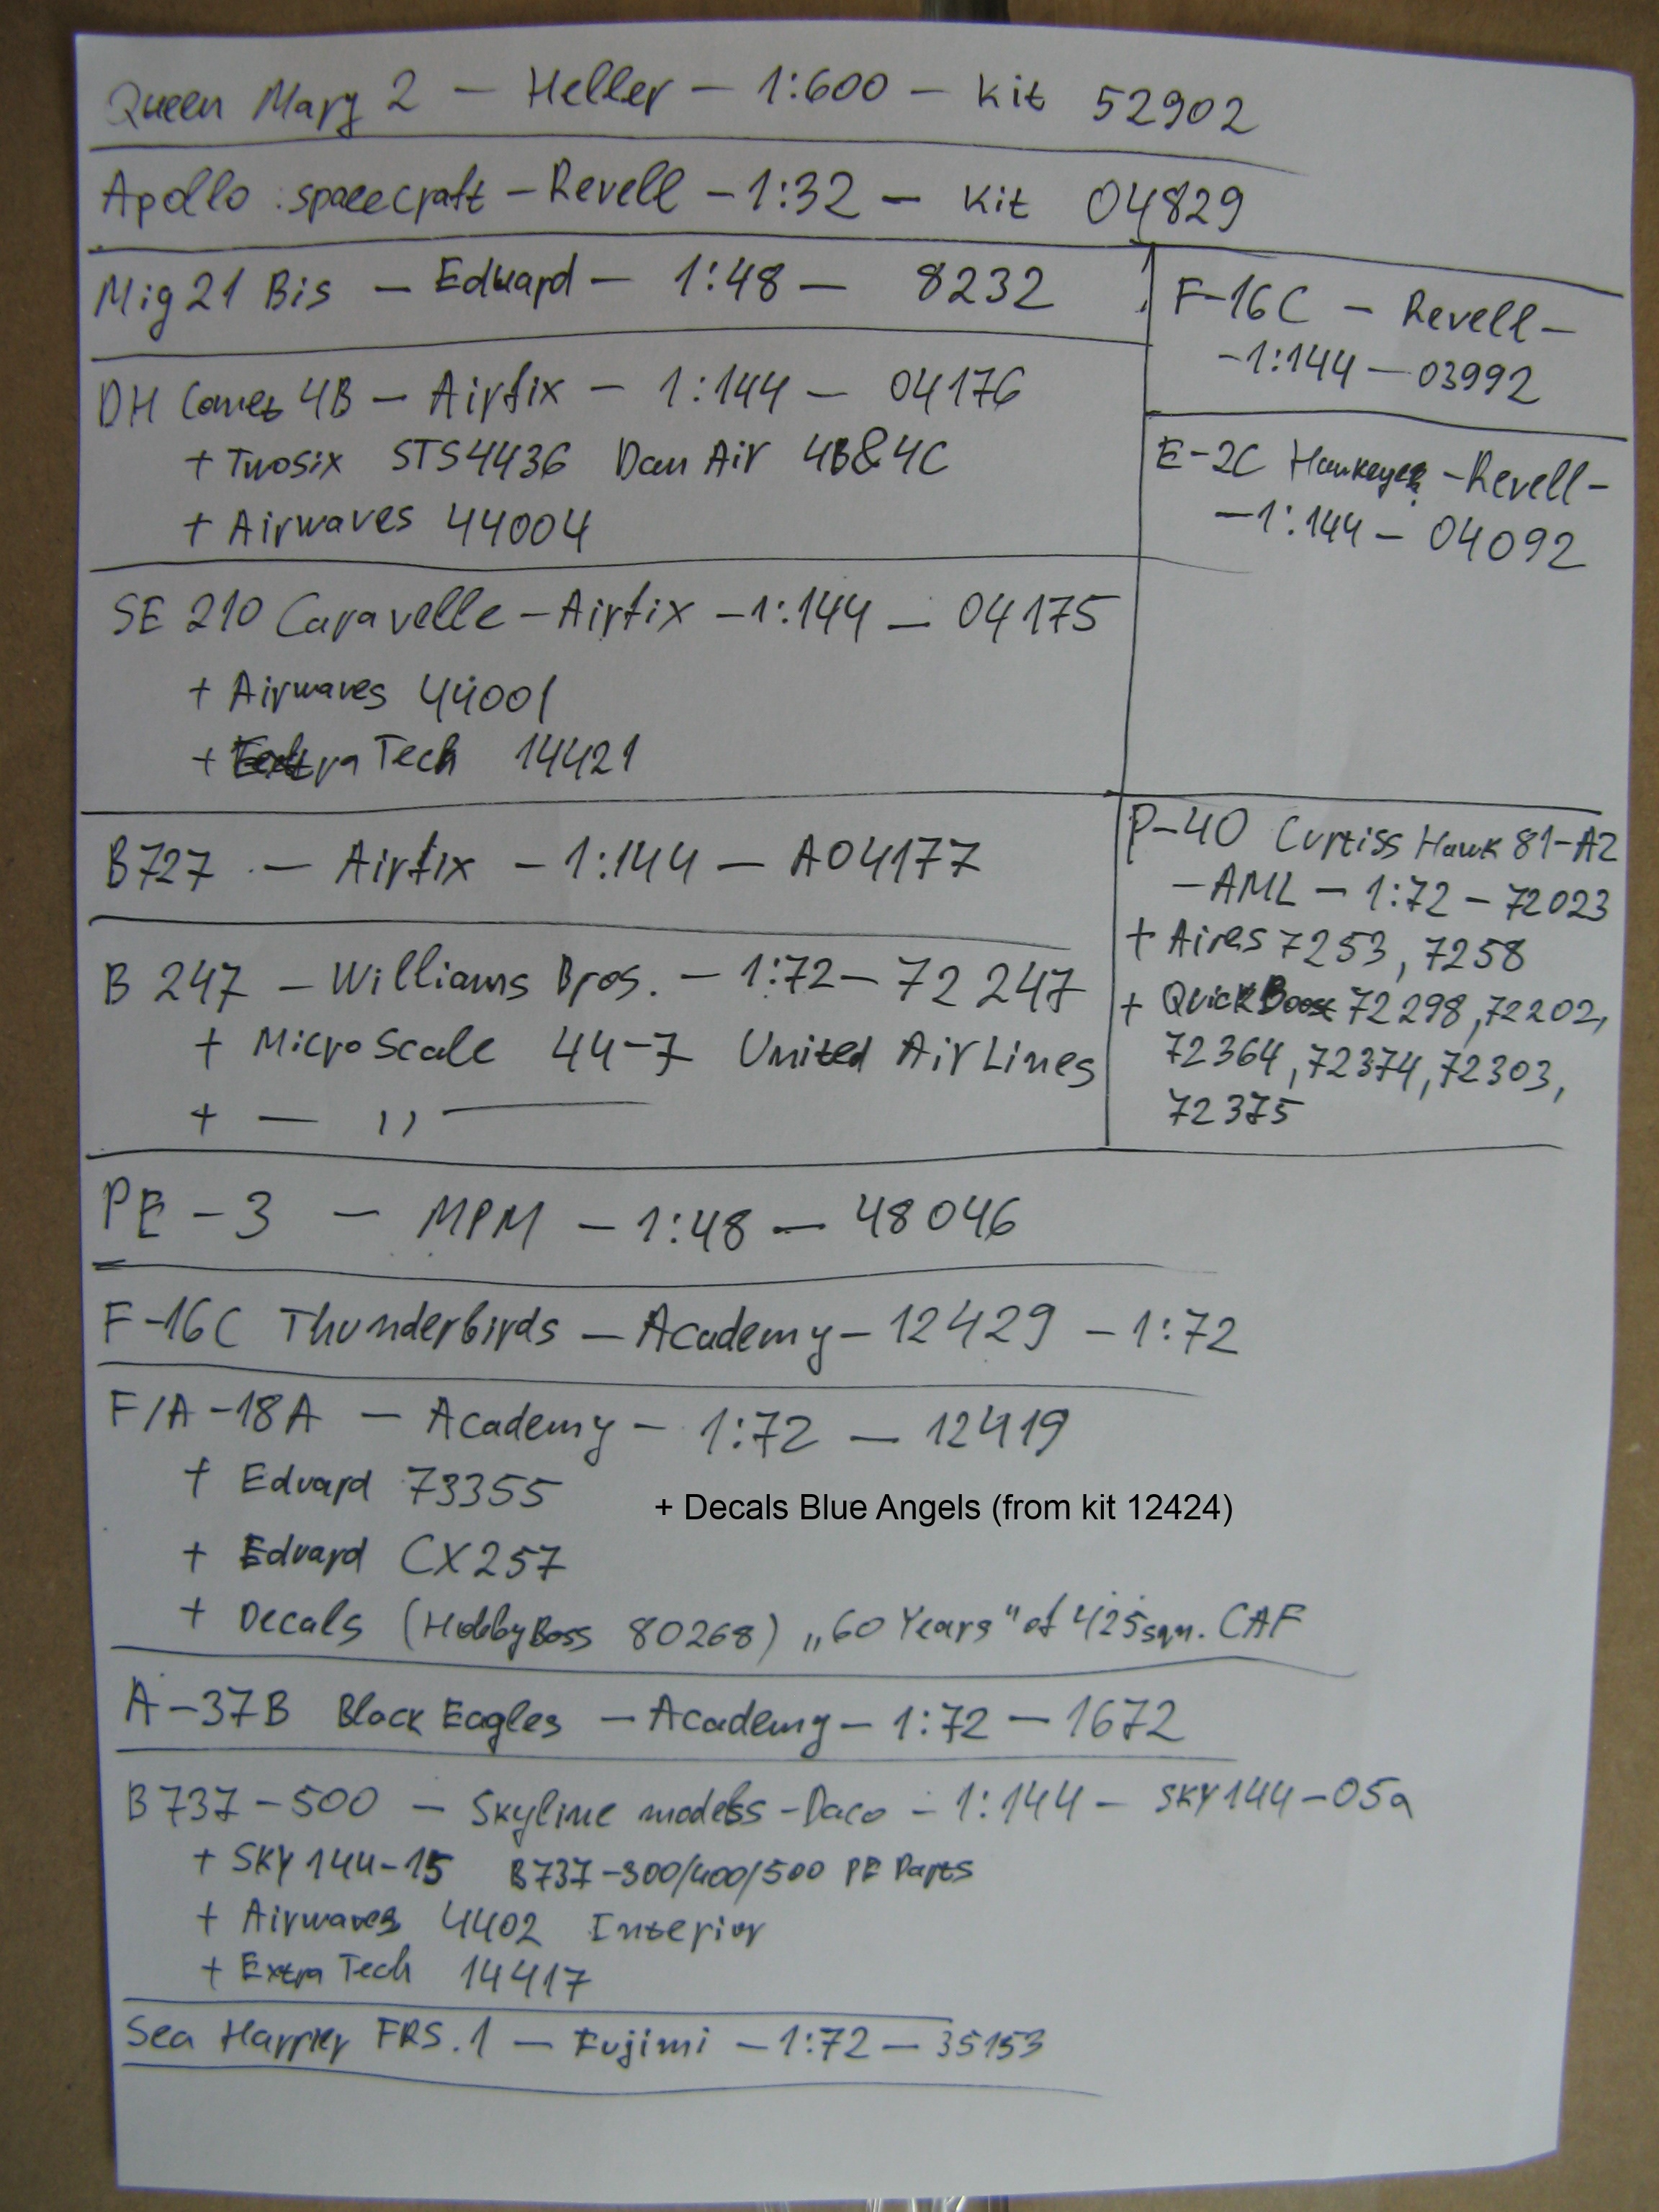 Queen Mary 2 — Heller — 1:600 — Kit 52902
Apollo spacecraft — Revell — 1:32 — Kit 04829
Mig 21 Bis — Eduard — 1:48 — 8232
DH Comet 4B — Airfix — 1:144 — 04176
+ Twosix STS4436 Dan Air 4B&4C
+ Airwaves 44004
SE 210 Caravelle — Airfix — 1:144 — 04175
+ Airwaves 44001
+ Extra Tech 14421
B727 — Airfix — 1:144 — A04177
B 247 — Williams Bros. — 1:72 — 72 247
+ MicroScale 44-7 United AirLines
+ — ,, —
F-16C — Revell —
—1:144 — 03992
E-2C Hawkeye — Revell —
—1:144 — 04092
P-40 Curtiss Hawk 81-A2
— AML — 1:72 — 72023
+ Aires 7253, 7258
+ QuickBoost 72298, 72202,
72364, 72374, 72303,
72375
PE-3 — MPM — 1:48 — 48046
F-16C Thunderbirds — Academy — 12429 — 1:72
F/A-18A — Academy — 1:72 — 12419
+ Eduard 73355
+ Decals Blue Angels (from kit 12424)
+ Eduard CX257
+ Decals (HobbyBoss 80268) „60 Years" of 425sqn. CAF
A-37B Black Eagles — Academy — 1:72 — 1672
B737-500 — Skyline models - Daco — 1:144 — SKY144-05a
+ SKY144-15 B737-300/400/500 PE Parts
+ Airwaves 4402 Interior
+ Extra Tech 14417
Sea Harrier FRS.1 — Fujimi — 1:72 — 35153